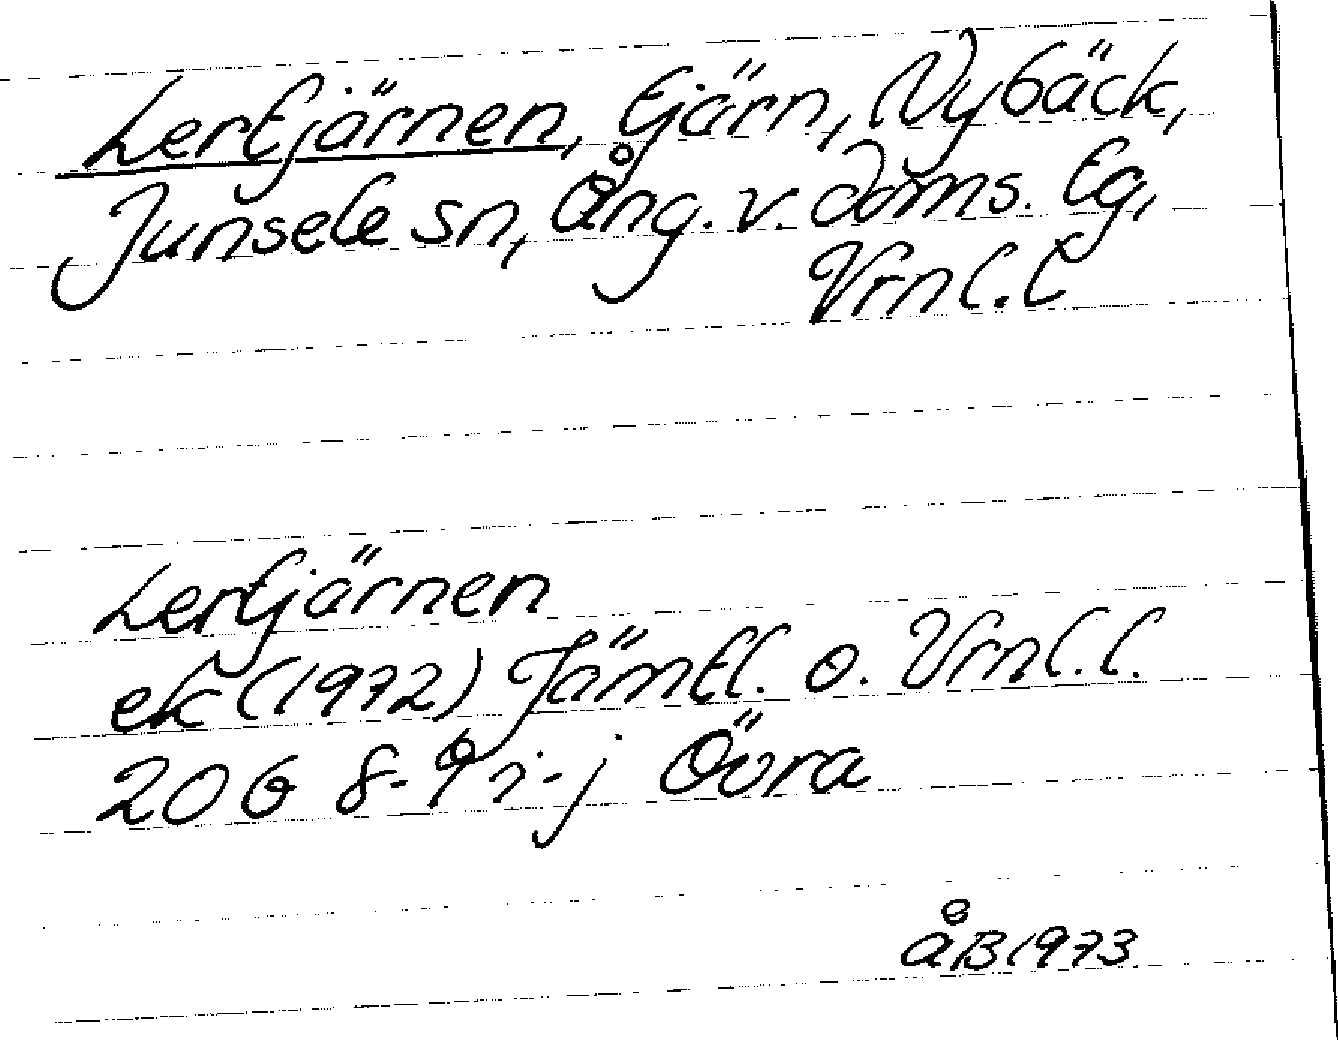 Lertjärnen, tjärn, Nybäck,
Junsele sn, Ång. v. doms. tg,
Vrnl.l
Lertjärnen
ek (1972) Jämtl. o. Vrnl.l.
20G 8-9 i-j Övra
ÅB 1973